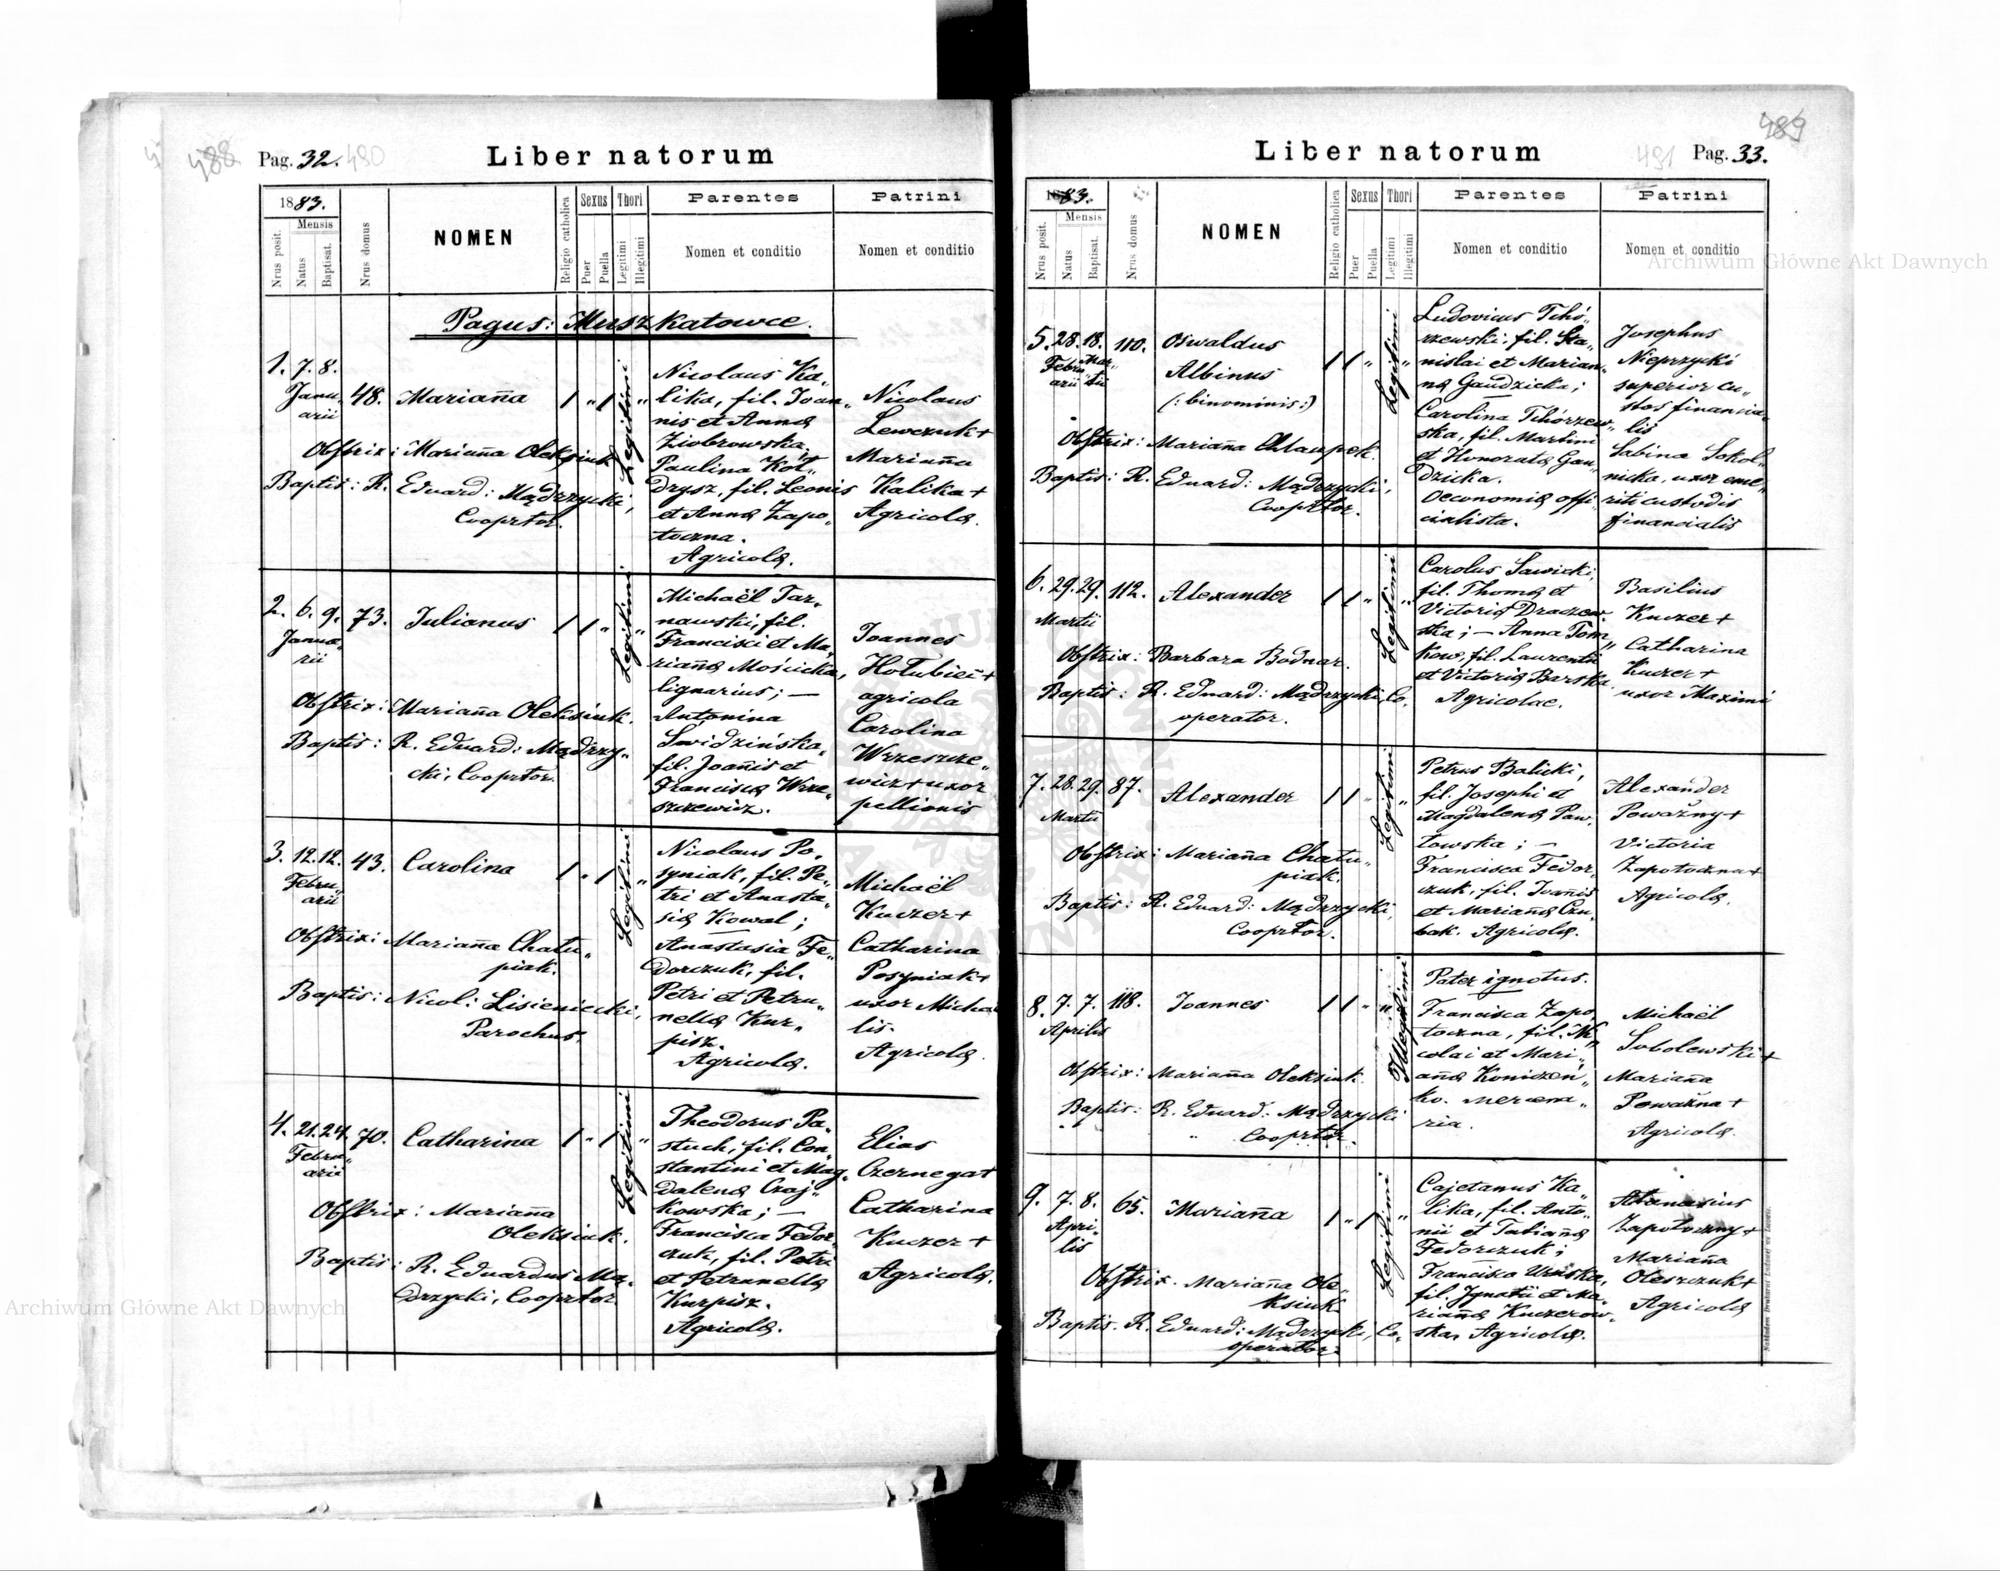 488
Pag. 32. 480
Liber natorum
1883.
Mensis
Nrus posit.
Natus
Baptisat.
Nrus domus
NOMEN
Religio catholica
Sexus
Puer
Puella
Thori
Legitimi
Illegitimi
Parentes
Nomen et conditio
Patrini
Nomen et conditio
Pagus: Muszkatowce.
1. 7. 8.
Janu„
arii
48. Mariaña
Legitimi
Obstrix: Mariaña Oleksiuk
Baptis: R. Eduard: Mądrzycki,
Cooprtor.
Nicolaus Ka„
lika, fil. Joan„
nis et Anna
Ziobrowska,
Paulina Koł„
drysz, fil. Leonis
et Anna Zapo„
toczna.
Agricolæ.
Nicolaus
Lewczuk +
Mariaña
Kalika +
Agricolæ.
2. 6. 9.
Janua„
rii
73. Julianus
Legitimi
Obstrix: Mariaña Oleksiuk.
Baptis: R. Eduard: Mądrzy„
cki, Cooprtor.
Michaël Tar„
nawski, fil.
Francisci et Ma„
riaña Mościcka,
lignarius; —
Antonina
Swidzińska,
fil. Joañis et
Francisca Wrze„
szczewicz.
Joannes
Hołubieć +
agricola
Carolina
Wrzeszcze„
wicz + uxor
pellionis
3. 12. 12.
Febru„
arii
43. Carolina
Legitimi
Obstrix: Mariaña Chału„
piak.
Baptis: Nicol: Lisieniecki,
Parochus.
Nicolaus Po„
syniak, fil. Pe„
tri et Anasta„
sia Kowal;
Anastasia Fe„
dorczuk, fil.
Petri et Petru„
nella Kur„
pisz.
Agricolæ.
Michaël
Kuczer +
Catharina
Posyniak +
uxor Micha
lis.
Agricolæ.
4. 21. 24.
Febru„
arii
70. Catharina
Legitimi
Obstrix: Mariaña
Oleksiuk.
Baptis: R. Eduardus Mą„
drzycki, Cooprtor.
Theodorus Pa„
stuch, fil. Con„
stantini et Mag„
dalena Czaj„
kowska; —
Francisca Fedor„
czuk, fil. Petri
et Petrunella
Kurpisz.
Agricolæ.
Elias
Czernega +
Catharina
Kuczer +
Agricolæ.
489
Liber natorum
491 Pag. 33.
1883.
Mensis
Nrus posit.
Natus
Baptisat.
Nrus domus
NOMEN
Religio catholica
Sexus
Puer
Puella
Thori
Legitimi
Illegitimi
Parentes
Nomen et conditio
Patrini
Nomen et conditio
5. 28. 18.
Febru„ Mar„
arii tii
110. Oswaldus
Albinus
(: binominis :)
Legitimi
Obstrix: Mariaña Chlaupek.
Baptis: R. Eduard: Mądrzycki,
Cooprtor.
Ludovicus Tchó„
rzewski, fil. Sta„
nislai et Marian„
na Gaudzicka;
Carolina Tchórzew„
ska, fil. Martini
et Honorata Gau„
dzicka.
Oeconomiæ offi„
cialista.
Josephus
Nieprzycki
superior cu„
stos financia„
lis
Sabina Sokol„
nicka, uxor eme„
riti custodis
financialis
6. 29. 29.
Martii
112. Alexander
Legitimi
Obstrix: Barbara Bodnar.
Baptis: R. Eduard: Mądrzycki, Co„
operator.
Carolus Sawicki,
fil. Thoma et
Victoria Draczew„
ska; — Anna Tom„
kow, fil. Laurentii
et Victoria Barska
Agricolae.
Basilius
Kuczer +
Catharina
Kuczer +
uxor Maximi
7. 28. 29.
Martii
87. Alexander
Legitimi
Obstrix: Mariaña Chału„
piak.
Baptis: R. Eduard: Mądrzycki,
Cooprtor.
Petrus Balicki,
fil. Josephi et
Magdalena Paw„
łowska; —
Francisca Fedor„
czuk, fil. Joañis
et Mariaña Czu„
bak. Agricolæ.
Alexander
Poważny +
Victoria
Zapotoczna +
Agricolæ.
8. 7. 7.
Aprilis
118. Joannes
Illegitimi
Obstrix: Mariaña Oleksiuk.
Baptis: R. Eduard: Mądrzycki
Cooprtor.
Pater ignotus.
Francisca Zapo„
toczna, fil. Ni„
colai et Mari„
aña Koniczeń„
ko. Mercena„
ria.
Michaël
Sobolewski +
Mariaña
Poważna +
Agricolæ
9. 7. 8.
Apri„
lis
65. Mariaña
Legitimi
Obstrix: Mariaña Ole„
ksiuk
Baptis. R. Eduard: Mądrzycki, Co„
operator.
Cajetanus Ka„
lika, fil. Anto„
nii et Tatiana
Fedorczuk;
Francisca
fil. Ignatii et Ma„
riaña Kuczerow„
ska, Agricolæ.
Athanasius
Zapotoczny +
Mariaña
Oleszczuk +
Agricolæ
Archiwum Główne Akt Dawnych
Archiwum Główne Akt Dawnych